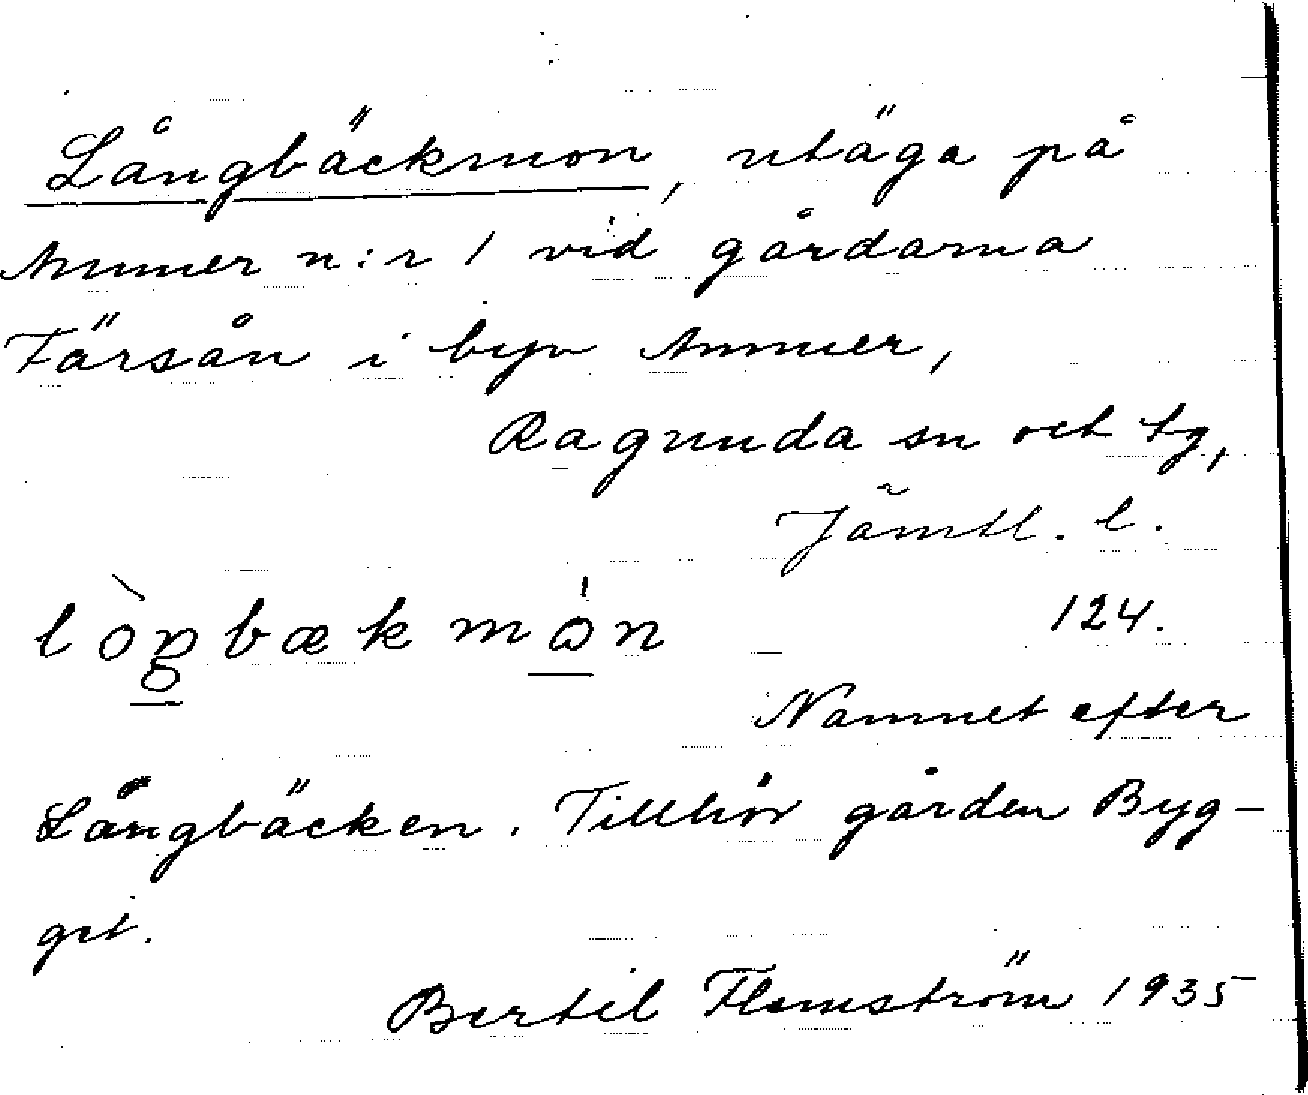 Långbäckmon, utäga på
Ammer n:r 1 vid gårdarna
Färsån i byn Ammer,
Ragunda sn och tg,
Jämtl. l.
124.
Namnet efter
Långbäcken. Tillhör gården Byg-
get.
Bertil Flemström 1935